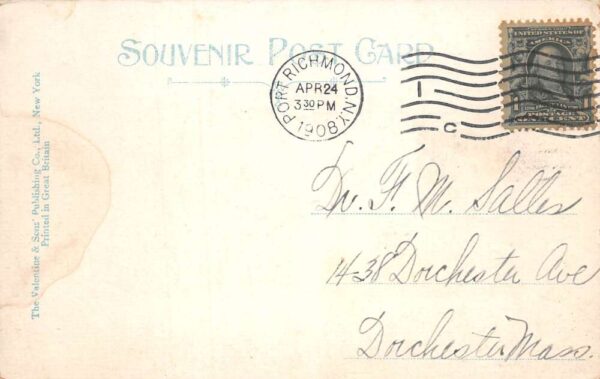 SOUVENIR POST CARD
PORT RICHMOND, N.Y.
APR 24
3 30 PM
1908
1
C
UNITED STATES OF
AMERICA
POSTAGE
ONE CENT
Dr. F. M. Salles
1438 Dorchester Ave
Dorchester Mass.
The Valentine & Sons' Publishing Co., Ltd., New York
Printed in Great Britain